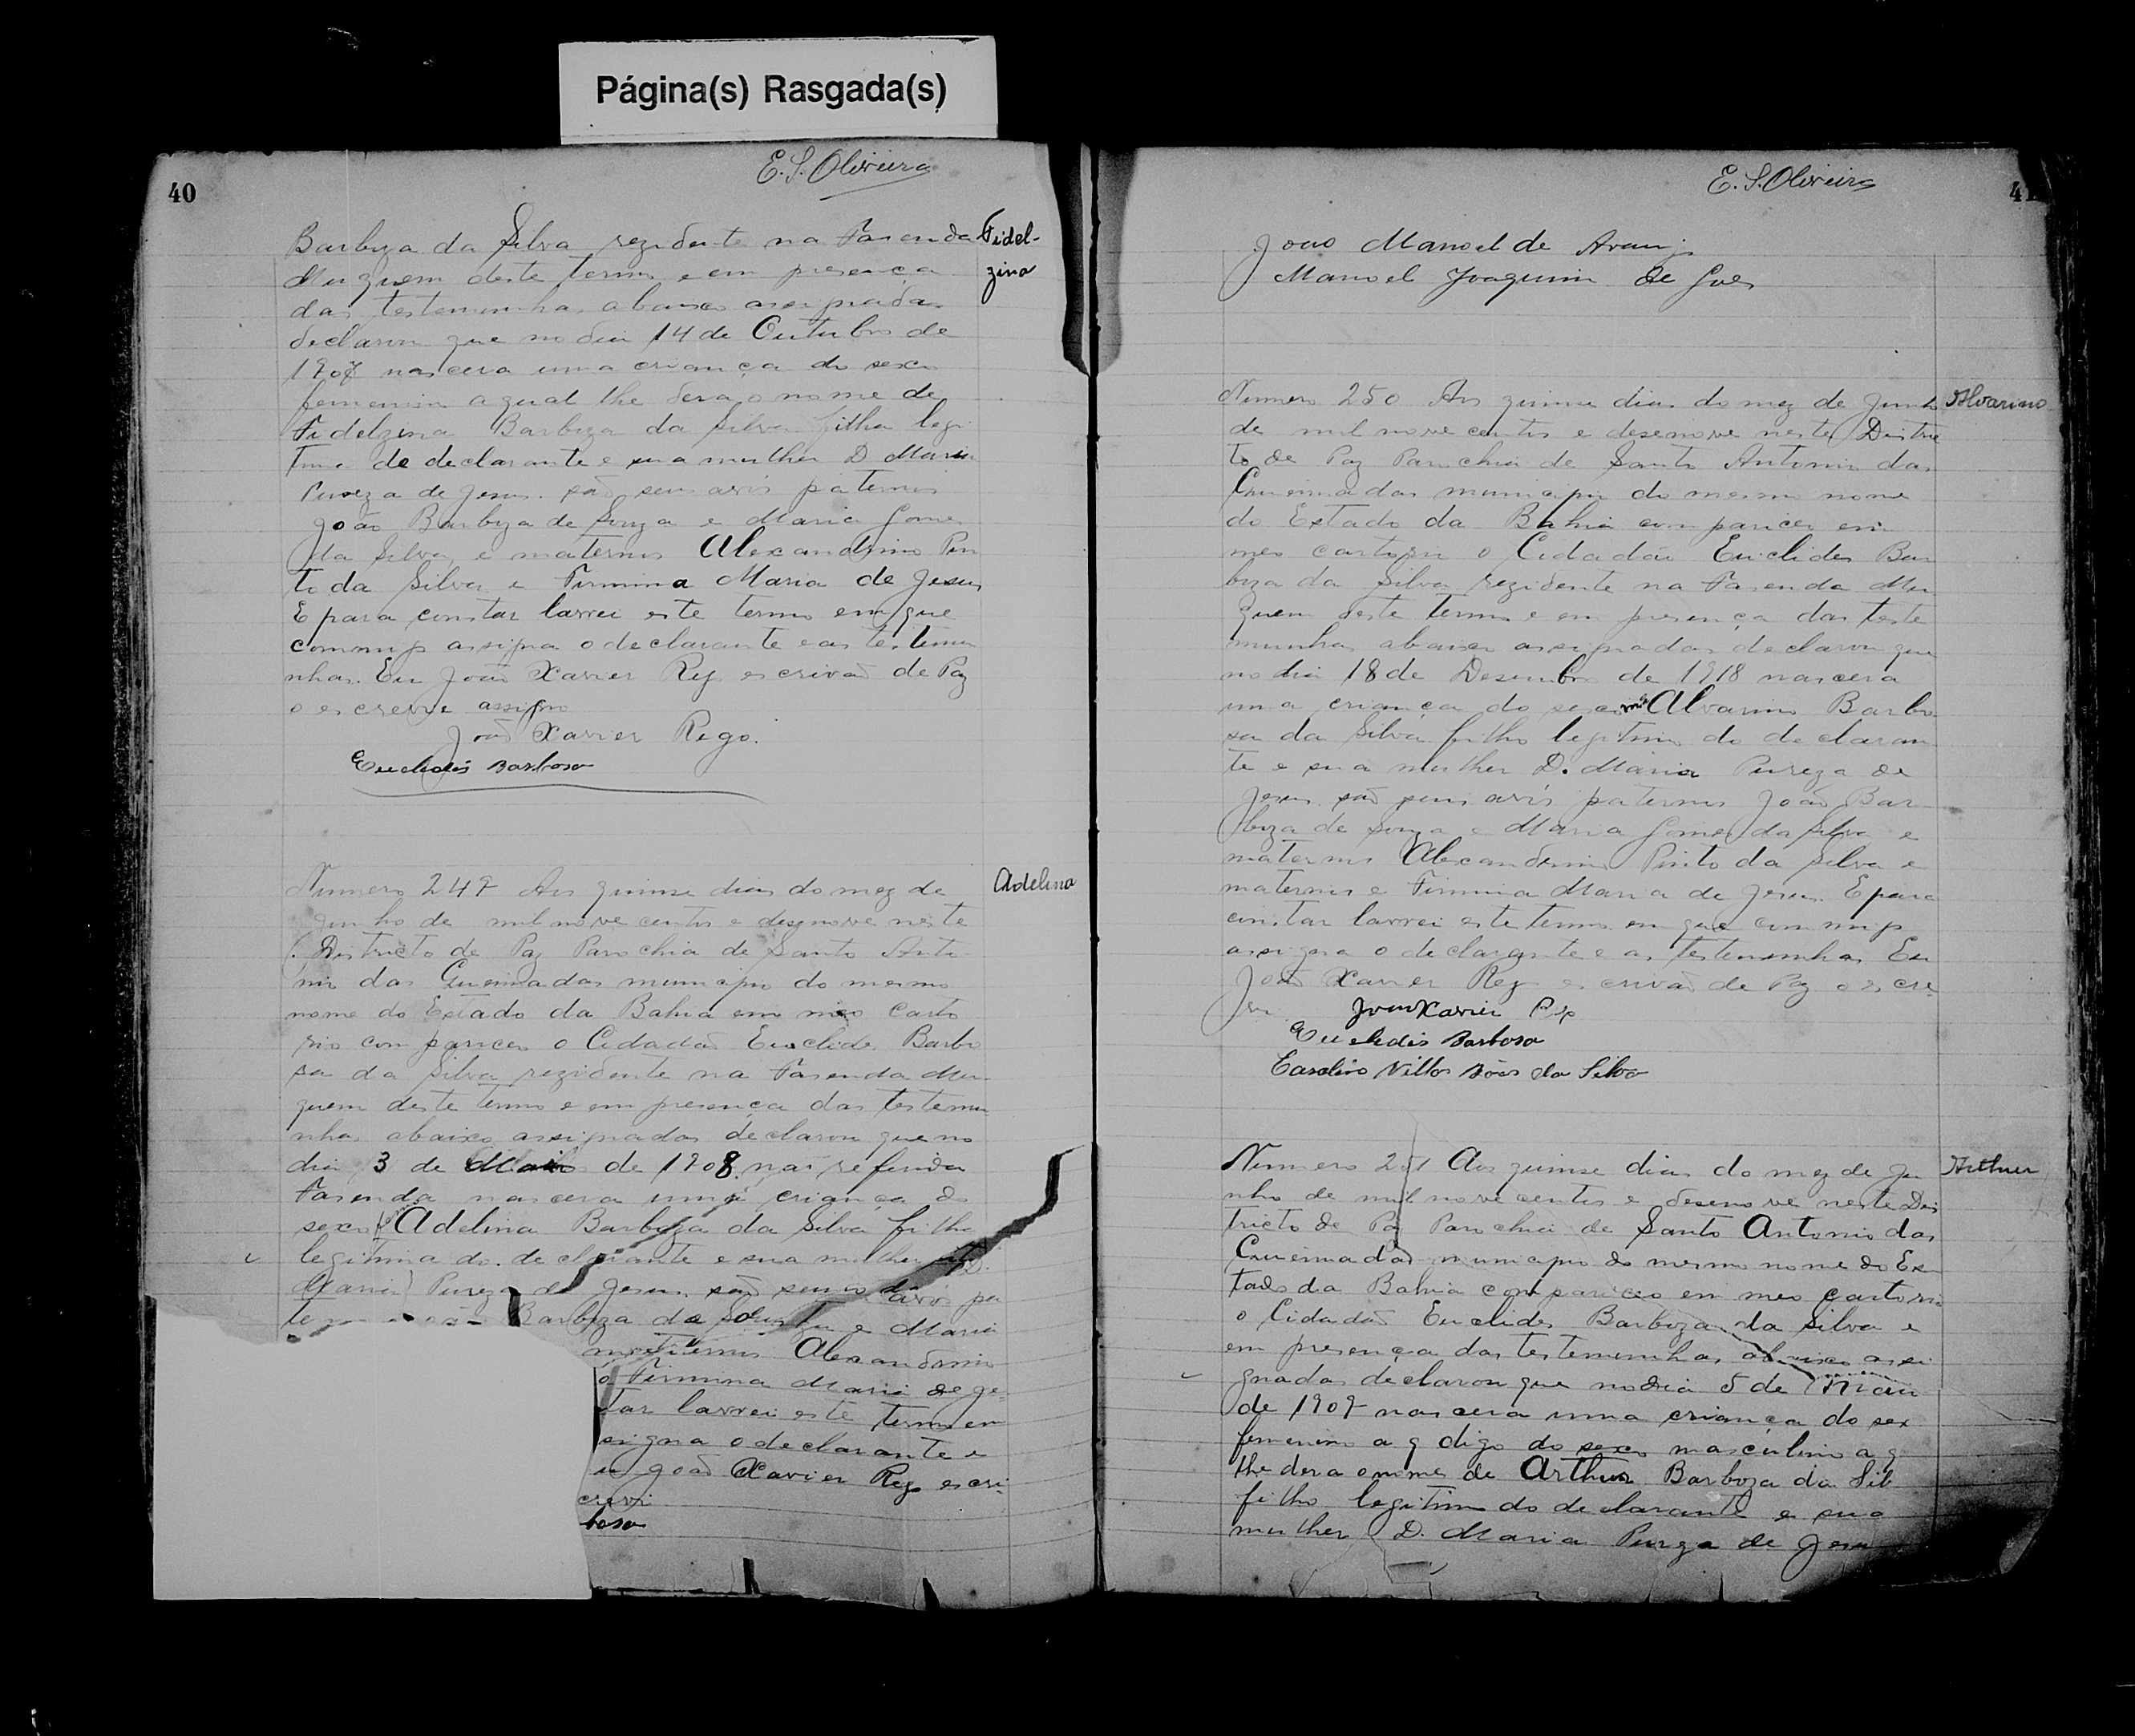 Página(s) Rasgada(s)
40
E. S. Oliveira
Barboza da Silva rezidente na Fasenda
Fidel-
zina
Muquem deste termo e em presença
das testemunhas abaixo assignadas
declarou que no dia 14 de Outubro de
1907 nascera uma criança do sexo
femenino a qual lhe dera o nome de
Fidelzina Barboza da Silva filha legi
tima de declarante e sua mulher D Maria
Pureza de Jesus. são seus avós paternos
João Barboza de Souza e Maria Gomes
da Silva e maternos Alexandrino Pin
to da Silva e Firmina Maria de Jesus
E para constar lavrei este termo em que
commigo assigna o declarante e as testemu
nhas. Eu João Xavier Rego escrivão de Paz
o escrevi e assigno
João Xavier Rego.
Euclides Barbosa
Numero 249 Aos quinse dias do mez de
Adelina
Junho de mil nove centos e desenove neste
Districto de Paz Parochia de Santo Anto
nio das Queimadas municipio do mesmo
nome do Estado da Bahia em meo Carto
rio compariceo o Cidadão Euclides Barbo
sa da Silva rezidente na Fasenda Mu
quem deste termo e em presença das testemu
nhas abaixo assignadas declarou que no
dia 3 de Maio de 1908 na referida
Fasenda nascera uma criança do
sexo Adelina Barboza da Silva filha
legitima do declarante e sua mulher D.
Maria Pureza de Jesus são seus avos pa
Barboza de Souza e Maria
maternos Alexandrino
Firmina Maria de Je-
tar lavrei este termo em
signa o declarante e
João Xavier Rego escri-
crevi
bosa
E. S. Oliveira
41
João Manoel de Araujo
Manoel Joaquim de Goes
Numero 250 Aos quinse dias do mez de Junho
Alvarino
de mil nove centos e desenove neste Distric
to de Paz Parochia de Santo Antonio das
Queimadas municipio do mesmo nome
do Estado da Bahia compariceo em
meo cartorio o Cidadão Euclides Bar
boza da Silva rezidente na Fasenda Mu
quem deste termo e em presença das teste
munhas abaixo assignadas declarou que
no dia 18 de Desembro de 1918 nascera
uma criança do sexo Alvarino Barbo
sa da Silva filho legitimo do declaran
te e sua mulher D. Maria Pureza de
Jesus são seus avós paternos João Bar
boza de Souza e Maria Gomes da Silva e
maternos Alexandrino Pinto da Silva e
maternos e Firmina Maria de Jesus. E para
constar lavrei este termo em que commigo
assigna o declarante e as testemunhas Eu
João Xavier Rego escrivão de Paz o escre-
vi João Xavier Rego
Euclides Barbosa
Villas Bôas da Silva
Numero 251 Aos quinse dias do mez de Ju
Arthur
nho de mil nove centos e desenove neste Dis
tricto de Paz Parochia de Santo Antonio das
Queimadas municipio do mesmo nome do Es
tado da Bahia compariceo em meo cartorio
o Cidadão Euclides Barboza da Silva e
em presença das testemunhas abaixo assi
gnadas declarou que no dia 5 de Maio
de 1909 nascera uma criança do sex
femenino a q digo do sexo masculino a q
lhe dera o nome de Arthur Barboza da Silv
filho legitimo do declarante e sua
mulher D. Maria Pureza de Jesu